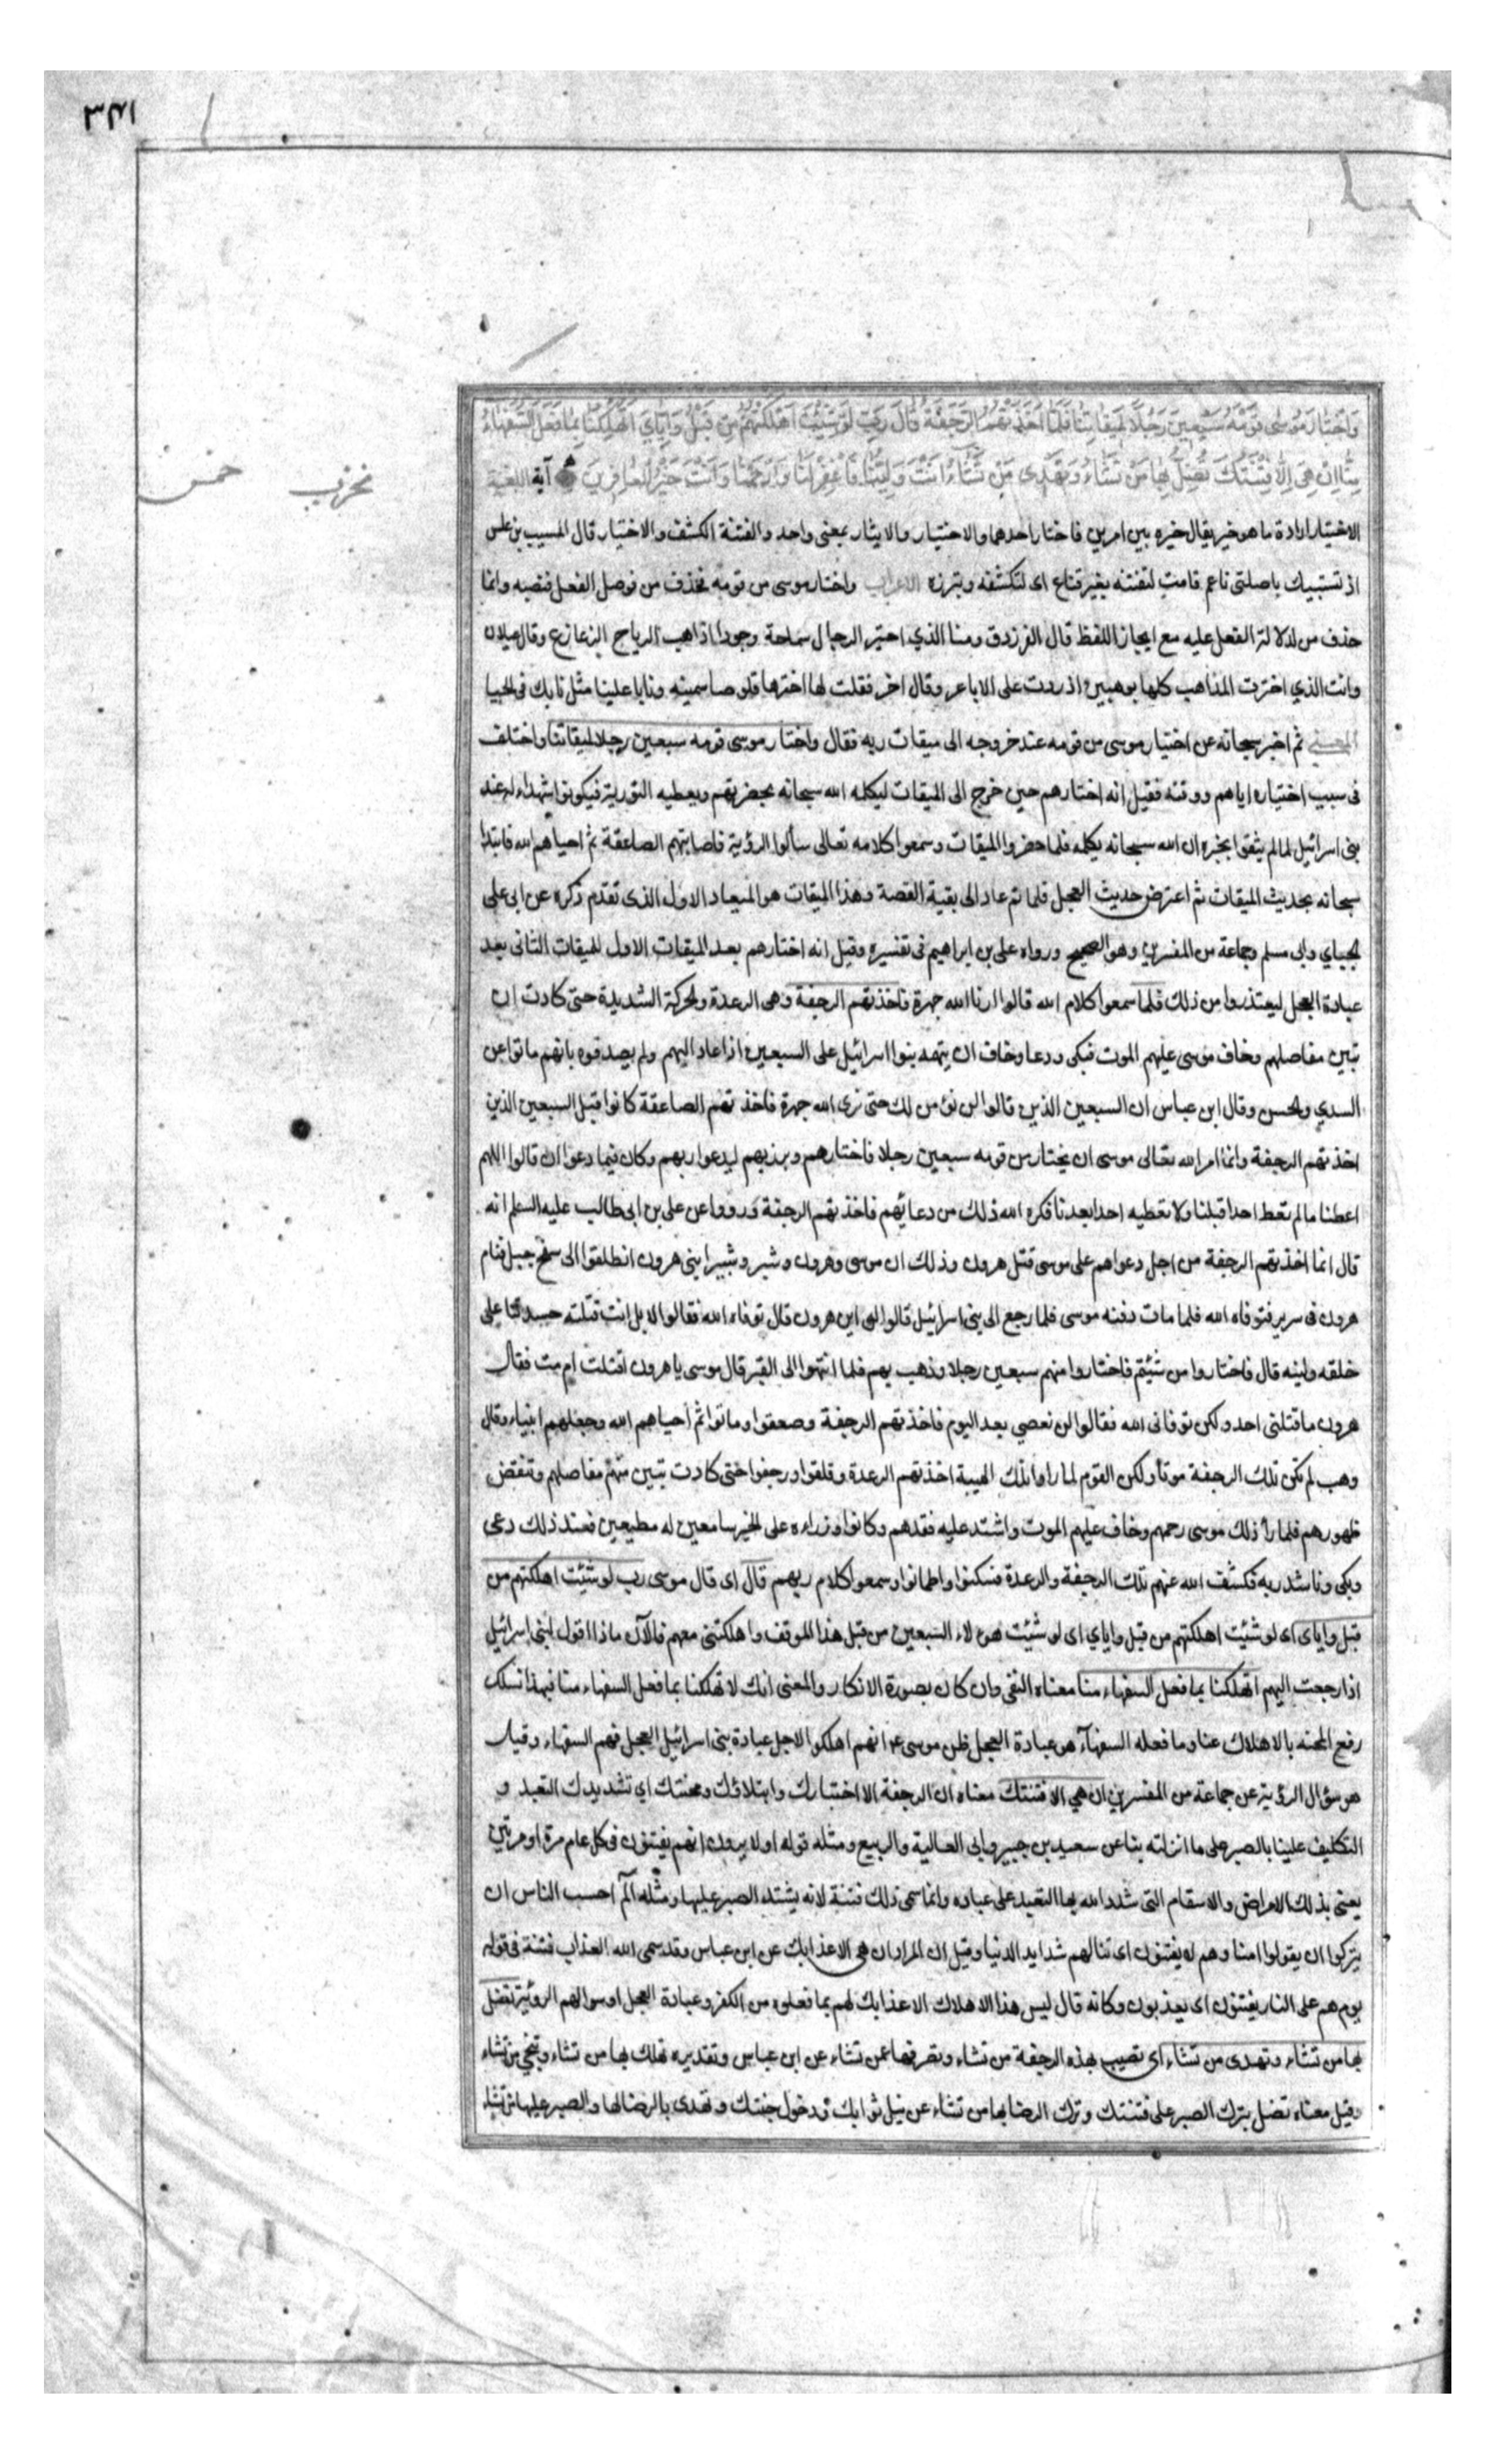 ٣٤١
وَاخْتَارَ مُوسَى قَوْمَهُ سَبْعِينَ رَجُلًا لِمِيقَاتِنَا فَلَمَّا أَخَذَتْهُمُ الرَّجْفَةُ قَالَ رَبِّ لَوْ شِئْتَ أَهْلَكْتَهُمْ مِنْ قَبْلُ وَإِيَّايَ أَتُهْلِكُنَا بِمَا فَعَلَ السُّفَهَاءُ
مِنَّا إِنْ هِيَ إِلَّا فِتْنَتُكَ تُضِلُّ بِهَا مَنْ تَشَاءُ وَتَهْدِي مَنْ تَشَاءُ أَنْتَ وَلِيُّنَا فَاغْفِرْ لَنَا وَارْحَمْنَا وَأَنْتَ خَيْرُ الْغَافِرِينَ آية اللغة
خمس
الاختيار ارادة ما هو خير يقال خيره بين امرين فاختار احدهما والاختيار والايثار بمعنى واحد والفتنة الكشف والاختبار قال المسيب بن علس
اذ تستبيك باصلتي ناعم قامت لتفتنه بغير قناع اى لتكشفه وبترزه الاعراب واختار موسى من قومه فحذف من فوصل الفعل فنصبه وانما
حذف من لدلالة الفعل عليه مع ايجاز اللفظ قال الفرزدق ومنا الذي اختير الرجال سماحة وجودا اذا هب الرياح الزعازع وقال غيلان
وانت الذي اخترت المذاهب كلها بوهبين اذ ردت على الاباعر وقال اخر فقلت لها اخترها قلوصا سمينة ونابا علينا مثل نابك فى الحيا
المعنى ثم اخبر سبحانه عن اختيار موسى من قومه عند خروجه الى ميقات ربه فقال واختار موسى قومه سبعين رجلا لميقاتنا واختلف
فى سبب اختياره اياهم ووقته فقيل انه اختارهم حين خرج الى الميقات ليكلمه الله سبحانه بحضرتهم ويعطيه التورية فيكونوا شهداء له عند
بنى اسرائيل لما لم يثقوا بخبره ان الله سبحانه يكلمه فلما حضروا الميقات وسمعوا كلامه تعالى سألوا الرؤية فاصابتهم الصاعقة ثم احياهم الله فابتدا
سبحانه بحديث الميقات ثم اعترض حديث العجل فلما تم عاد الى بقية القصة وهذا الميقات هو الميعاد الاول الذى تقدم ذكره عن ابى على
الجبايي وابى مسلم وجماعة من المفسرين وهو الصحيح ورواه على بن ابراهيم فى تفسيره وقيل انه اختارهم بعد الميقات الاول للميقات الثانى بعد
عبادة العجل ليعتذروا من ذلك فلما سمعوا كلام الله قالوا ارنا الله جهرة فاخذتهم الرجفة وهى الرعدة والحركة الشديدة حتى كادت ان
تبين مفاصلهم وخاف موسى عليهم الموت فبكى ودعا وخاف ان يتهمه بنوا اسرائيل على السبعين اذا عاد اليهم ولم يصدقوه بانهم ماتوا عن
السدي والحسن وقال ابن عباس ان السبعين الذين قالوا لن نؤمن لك حتى نرى الله جهرة فاخذتهم الصاعقة كانوا قبل السبعين الذين
اخذتهم الرجفة وانما امر الله تعالى موسى ان يختار من قومه سبعين رجلا فاختارهم وبرز بهم ليدعوا ربهم وكان فيما دعوا ان قالوا اللهم
اعطنا ما لم تعط احدا قبلنا ولا تعطيه احدا بعدنا فكره الله ذلك من دعائهم فاخذتهم الرجفة ورووا عن على بن ابى طالب عليه السلم انه
قال انما اخذتهم الرجفة من اجل دعواهم على موسى قتل هرون وذلك ان موسى وهرون وشبر وشبير ابنى هرون انطلقوا الى سفح جبل فنام
هرون فى سرير فتوفاه الله فلما مات دفنه موسى فلما رجع الى بنى اسرائيل قالوا له اين هرون قال توفاه الله فقالوا لا بل انت قتلته حسدتنا على
خلقه ولينه قال فاختاروا من شئتم فاختاروا منهم سبعين رجلا وذهب بهم فلما انتهوا الى القبر قال موسى يا هرون اقتلت ام مت فقال
هرون ما قتلنى احد ولكن توفانى الله فقالوا لن نعصي بعد اليوم فاخذتهم الرجفة وصعقوا وماتوا ثم أحياهم الله وجعلهم انبياء وقال
وهب لم تكن تلك الرجفة موتا ولكن القوم لما راوا تلك الهيبة اخذتهم الرعدة وقلقوا ورجفوا حتى كادت تبين منهم مفاصلهم وتنقض
ظهورهم فلما رأ ذلك موسى رحمهم وخاف عليهم الموت واشتد عليه فقدهم وكانوا وزراءه على الخير سامعين له مطيعين فعند ذلك دعى
وبكى وناشد ربه فكشف الله عنهم تلك الرجفة والرعدة فسكنوا واطمانوا وسمعوا كلام ربهم قال اى قال موسى رب لو شئت اهلكتهم من
قبل واياى اى لو شئت اهلكتهم من قبل واياي اى لو شئت هؤلاء السبعين من قبل هذا الموقف واهلكتنى معهم فالآن ماذا اقول لبنى اسرائيل
اذا رجعت اليهم اتهلكنا بما فعل السفهاء منا معناه النفى وان كان بصورة الانكار والمعنى انك لا تهلكنا بما فعل السفهاء منا فبهذا نسلك
رفع المحنة بالاهلاك عنا وما فعله السفهآء هو عبادة العجل ظن موسى ع انهم اهلكوا لاجل عبادة بنى اسرائيل العجل فهم السفهاء وقيل
هو سؤال الرؤية عن جماعة من المفسرين ان هي الا فتنتك معناه ان الرجفة الا اختبارك وابتلاؤك ومحنتك اي تشديدك التعبد و
التكليف علينا بالصبر على ما انزلته بنا عن سعيد بن جبير وابى العالية والربيع ومثله قوله اولا يرون انهم يفتنون فى كل عام مرة او مرتين
يعنى بذلك الامراض والاسقام التى شدد الله بها التعبد على عباده وانما سمى ذلك فتنة لانه يشتد الصبر عليها ومثله آلم احسب الناس ان
يتركوا ان يقولوا امنا وهم لا يفتنون اى تنالهم شدايد الدنيا وقيل ان المراد ان هى الا عذابك عن ابن عباس وقد سمى الله العذاب فتنة فى قوله
يوم هم على النار يفتنون اى يعذبون وكانه قال ليس هذا الاهلاك الا عذابك لهم بما فعلوه من الكفر وعبادة العجل او سوالهم الروئية تضل
بها من تشاء وتهدى من تشاء اى تصيب بهذه الرجفة من تشاء وتصرفها عمن تشاء عن ابن عباس وتقديره تهلك بها من تشاء وتنجي من تشاء
وقيل معناه تضل بترك الصبر على فتنتك وترك الرضا بها من تشاء عن نيل ثوابك ودخول جنتك وتهدى بالرضا لها والصبر عليها من تشاء